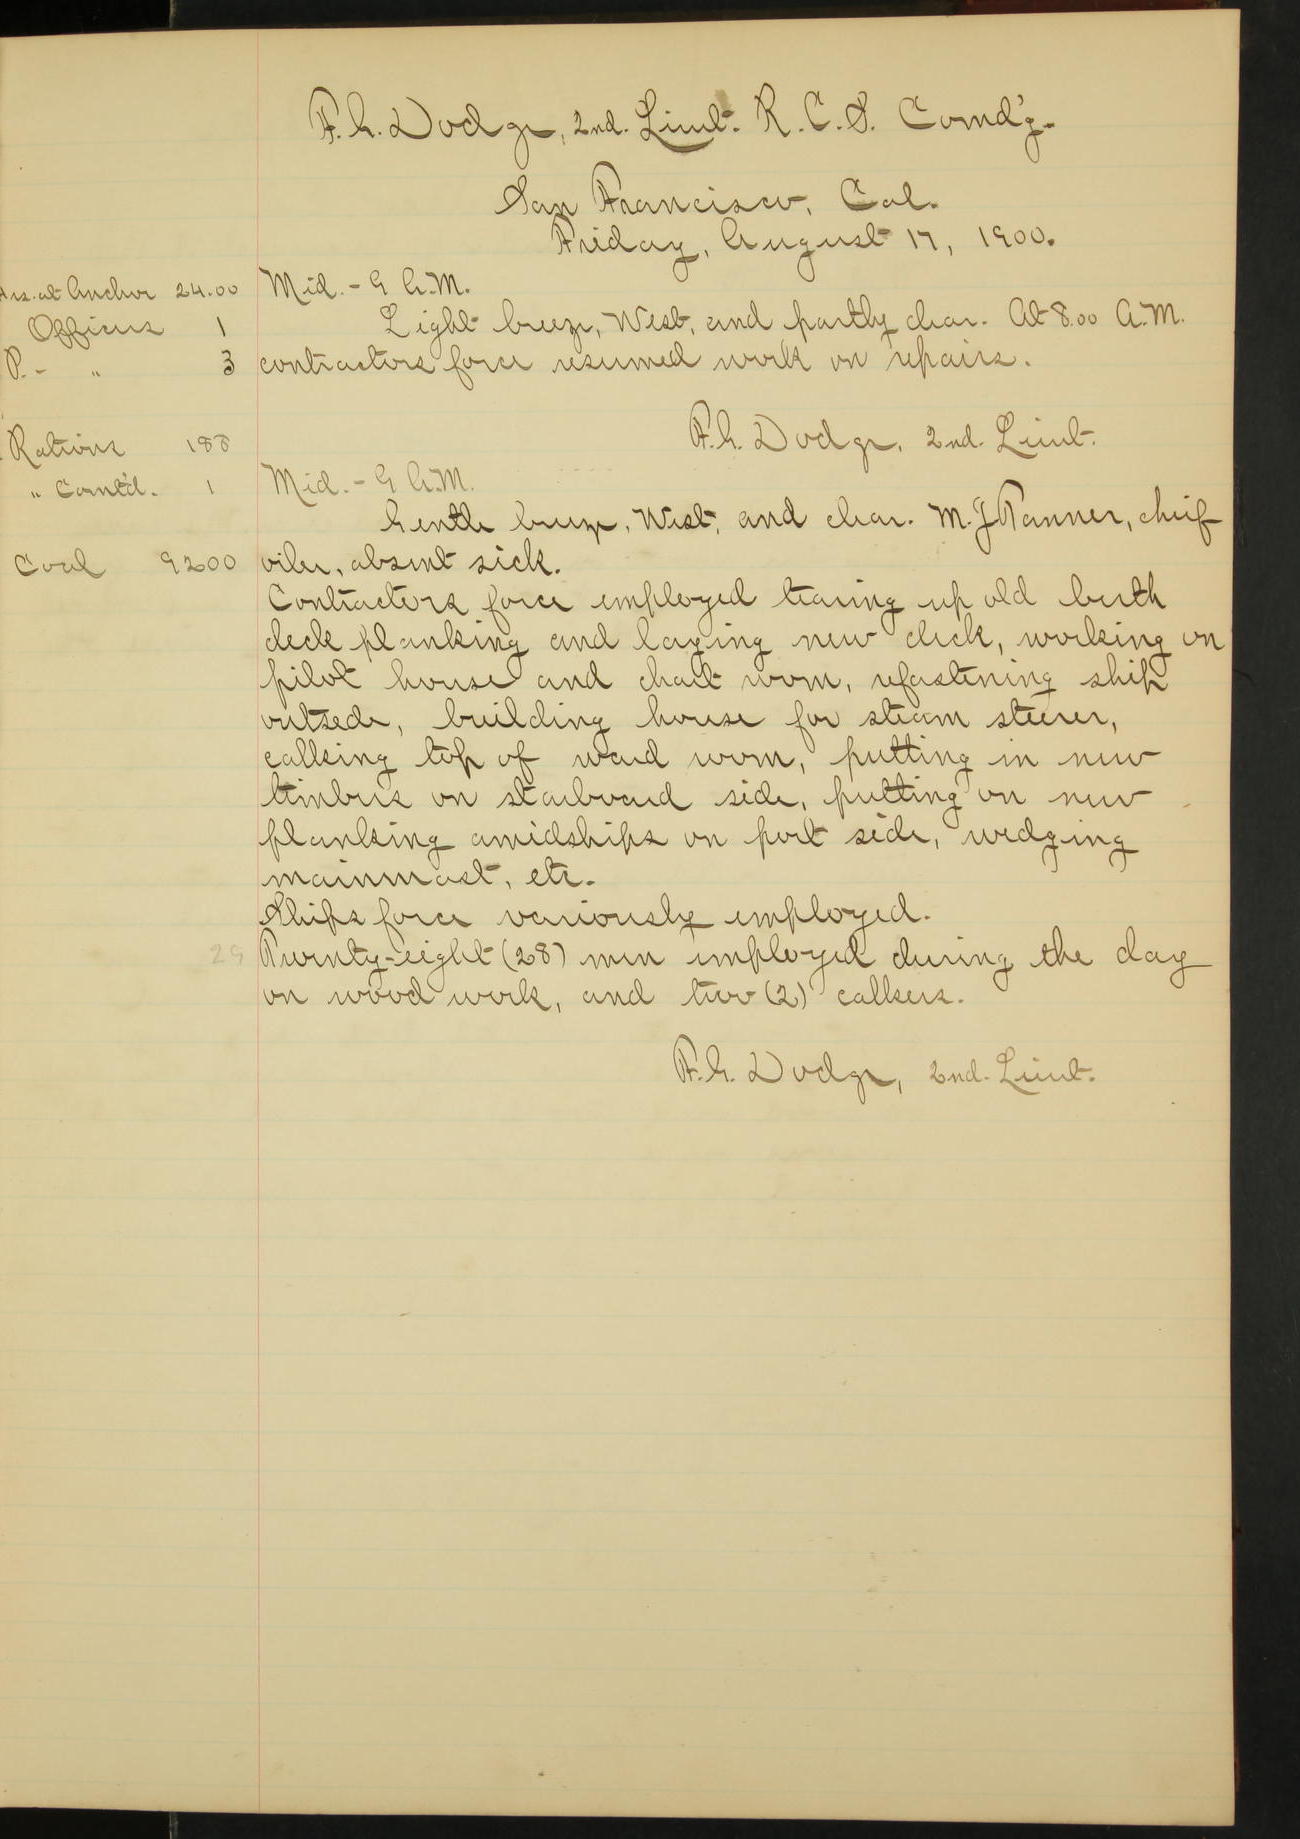 F. G. Dodge, 2nd. Lieut. R. C. S. Comd'g.
San Francisco, Cal.
Friday, August 17, 1900.
Hrs. at Anchor 24.00 Mid. - 9 A.M.
Officers 1 Light breeze, West, and partly clear. At 8.00 A.M.
P. - " 3 contractors force resumed work on repairs.
F. G. Dodge, 2nd. Lieut.
Rations 188
" Com't'd. 1 Mid. - 9 A.M.
Gentle breeze, West, and clear. M. J. Tanner, chief
Coal 9200 oiler, absent sick.
Contractors force employed tearing up old berth
deck planking and laying new deck, working on
pilot house and chart room, refastening ship
outside, building house for steam steerer,
calking top of ward room, putting in new
timbers on starboard side, putting on new
planking amidships on port side, wedging
mainmast, etc.
Ships force variously employed.
29 Twenty-eight (28) men employed during the day
on wood work, and two (2) calkers.
F. G. Dodge, 2nd. Lieut.